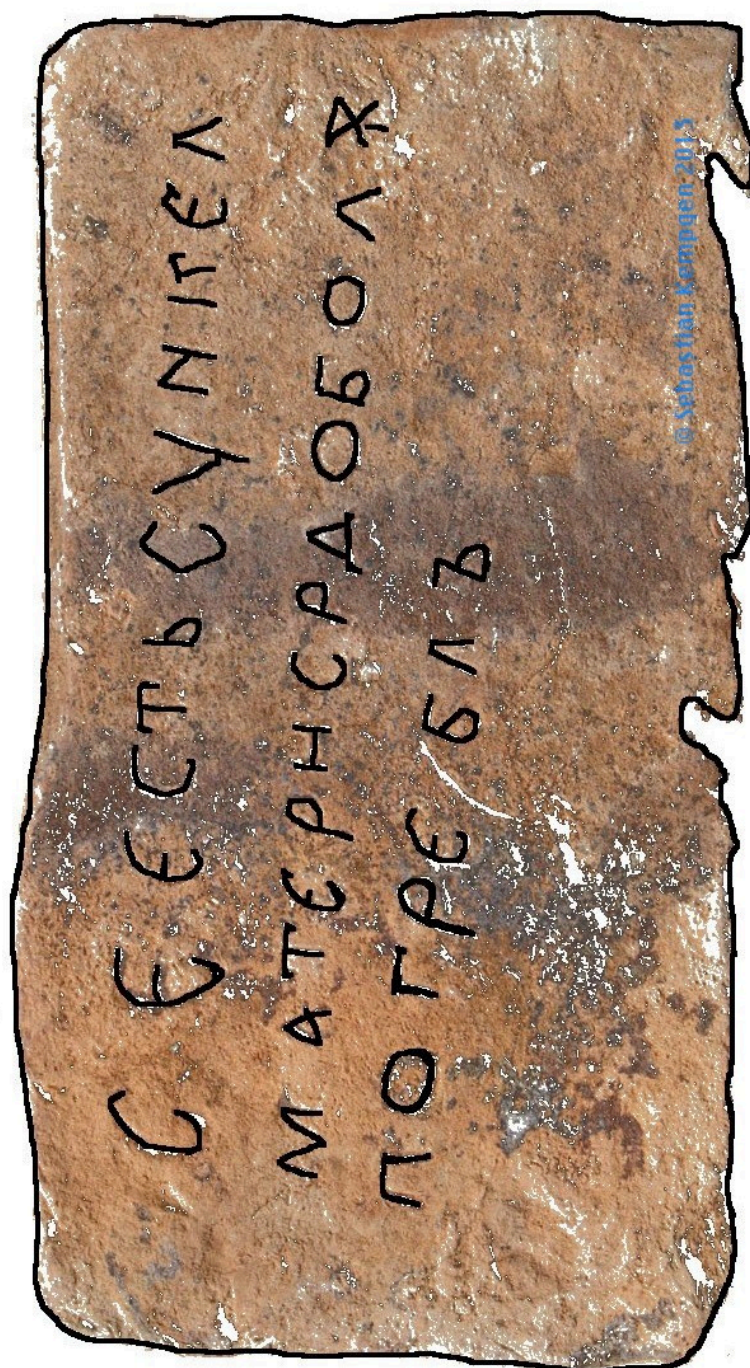 СЄ ЄСТЬСУNІГЄЛ
МАТЄРНСРДОБОЛѦ
ПОГРЄ БЛЪ
© Sebastian Kempgen 2015